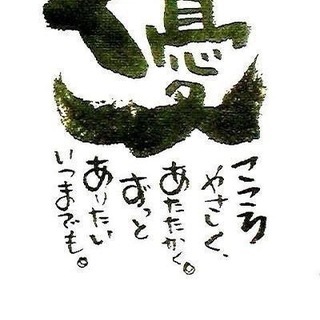 優
こころ
やさしく、
あたたかく。
ずっと
ありたい
いつまでも。